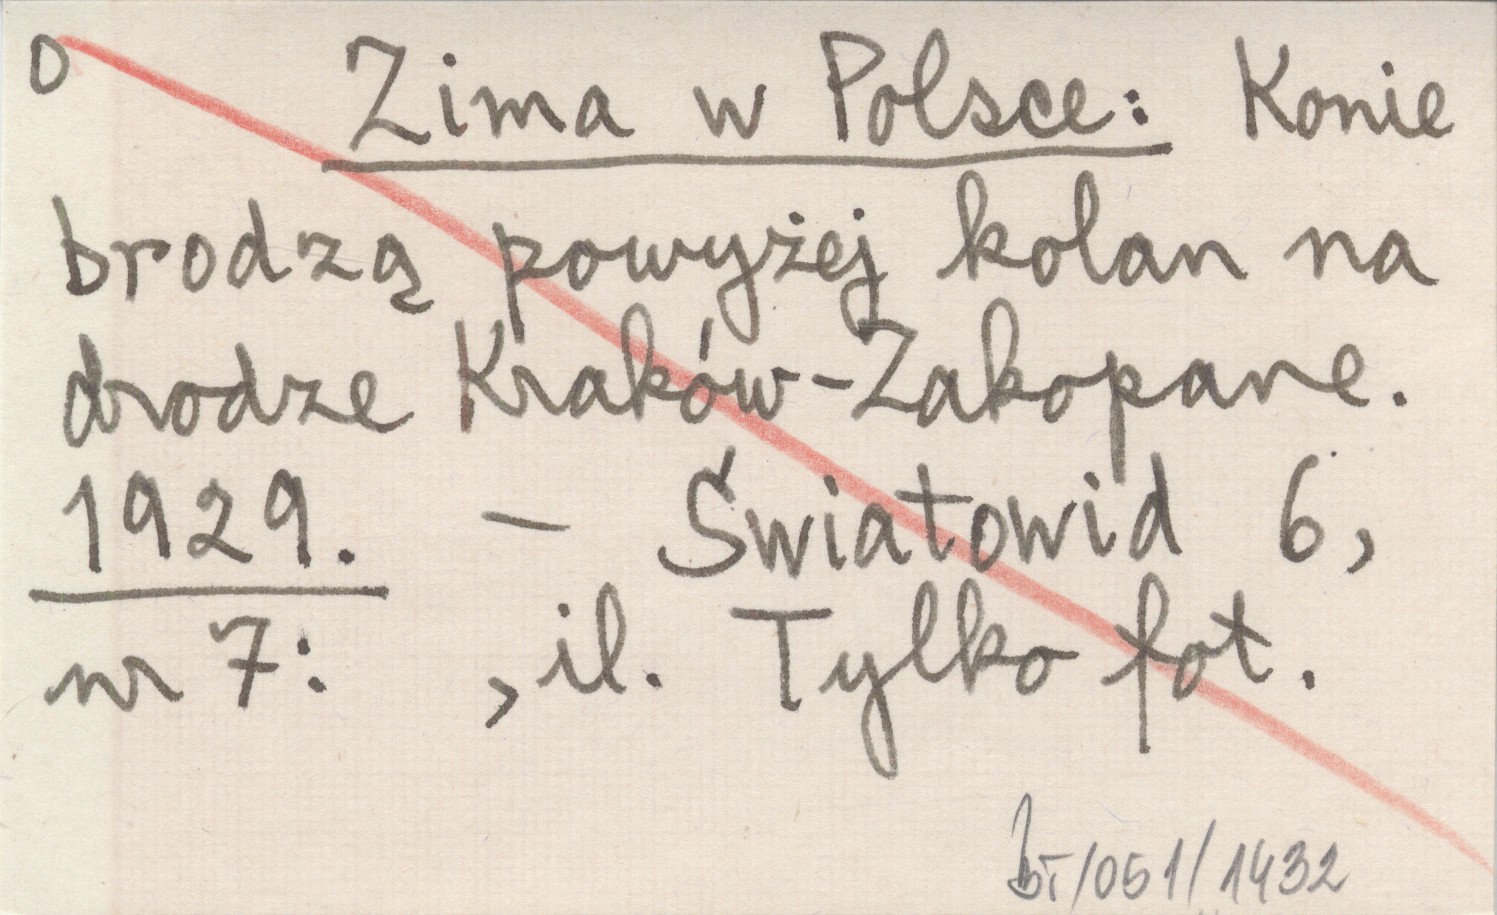 O Zima w Polsce: Konie
brodzą powyżej kolan na
drodze Kraków-Zakopane.
1929. - Światowid 6,
nr 7: , il. Tylko fot.
BT/051/1432